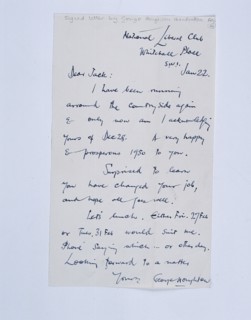 Signed letter by George Houghton
National Liberal Club
Whitehall Place
S.W.1.
Jan 22.
Dear Jack:
I have been running
around the countryside again
& only now am I acknowledging
yours of Dec 28. A very happy
& prosperous 1950 to you.
Surprised to learn
you have changed your job,
and hope all goes well.
Let's lunch. Either Fri. 27 Feb
or Tues, 31 Feb would suit me.
saying which... or other day.
Looking forward to a natter
Yours, George Houghton